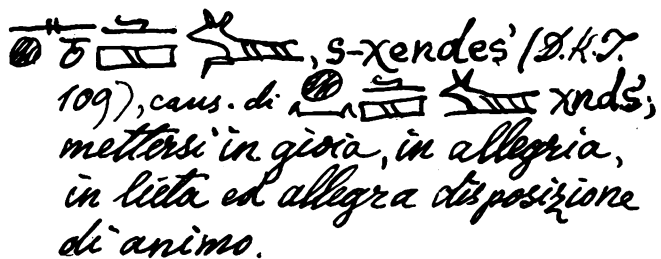 , s-χendeś (D.K.T.
109), caus. di χndś;
mettersi in gioia, in allegria,
in lieta ed allegra disposizione
di animo.